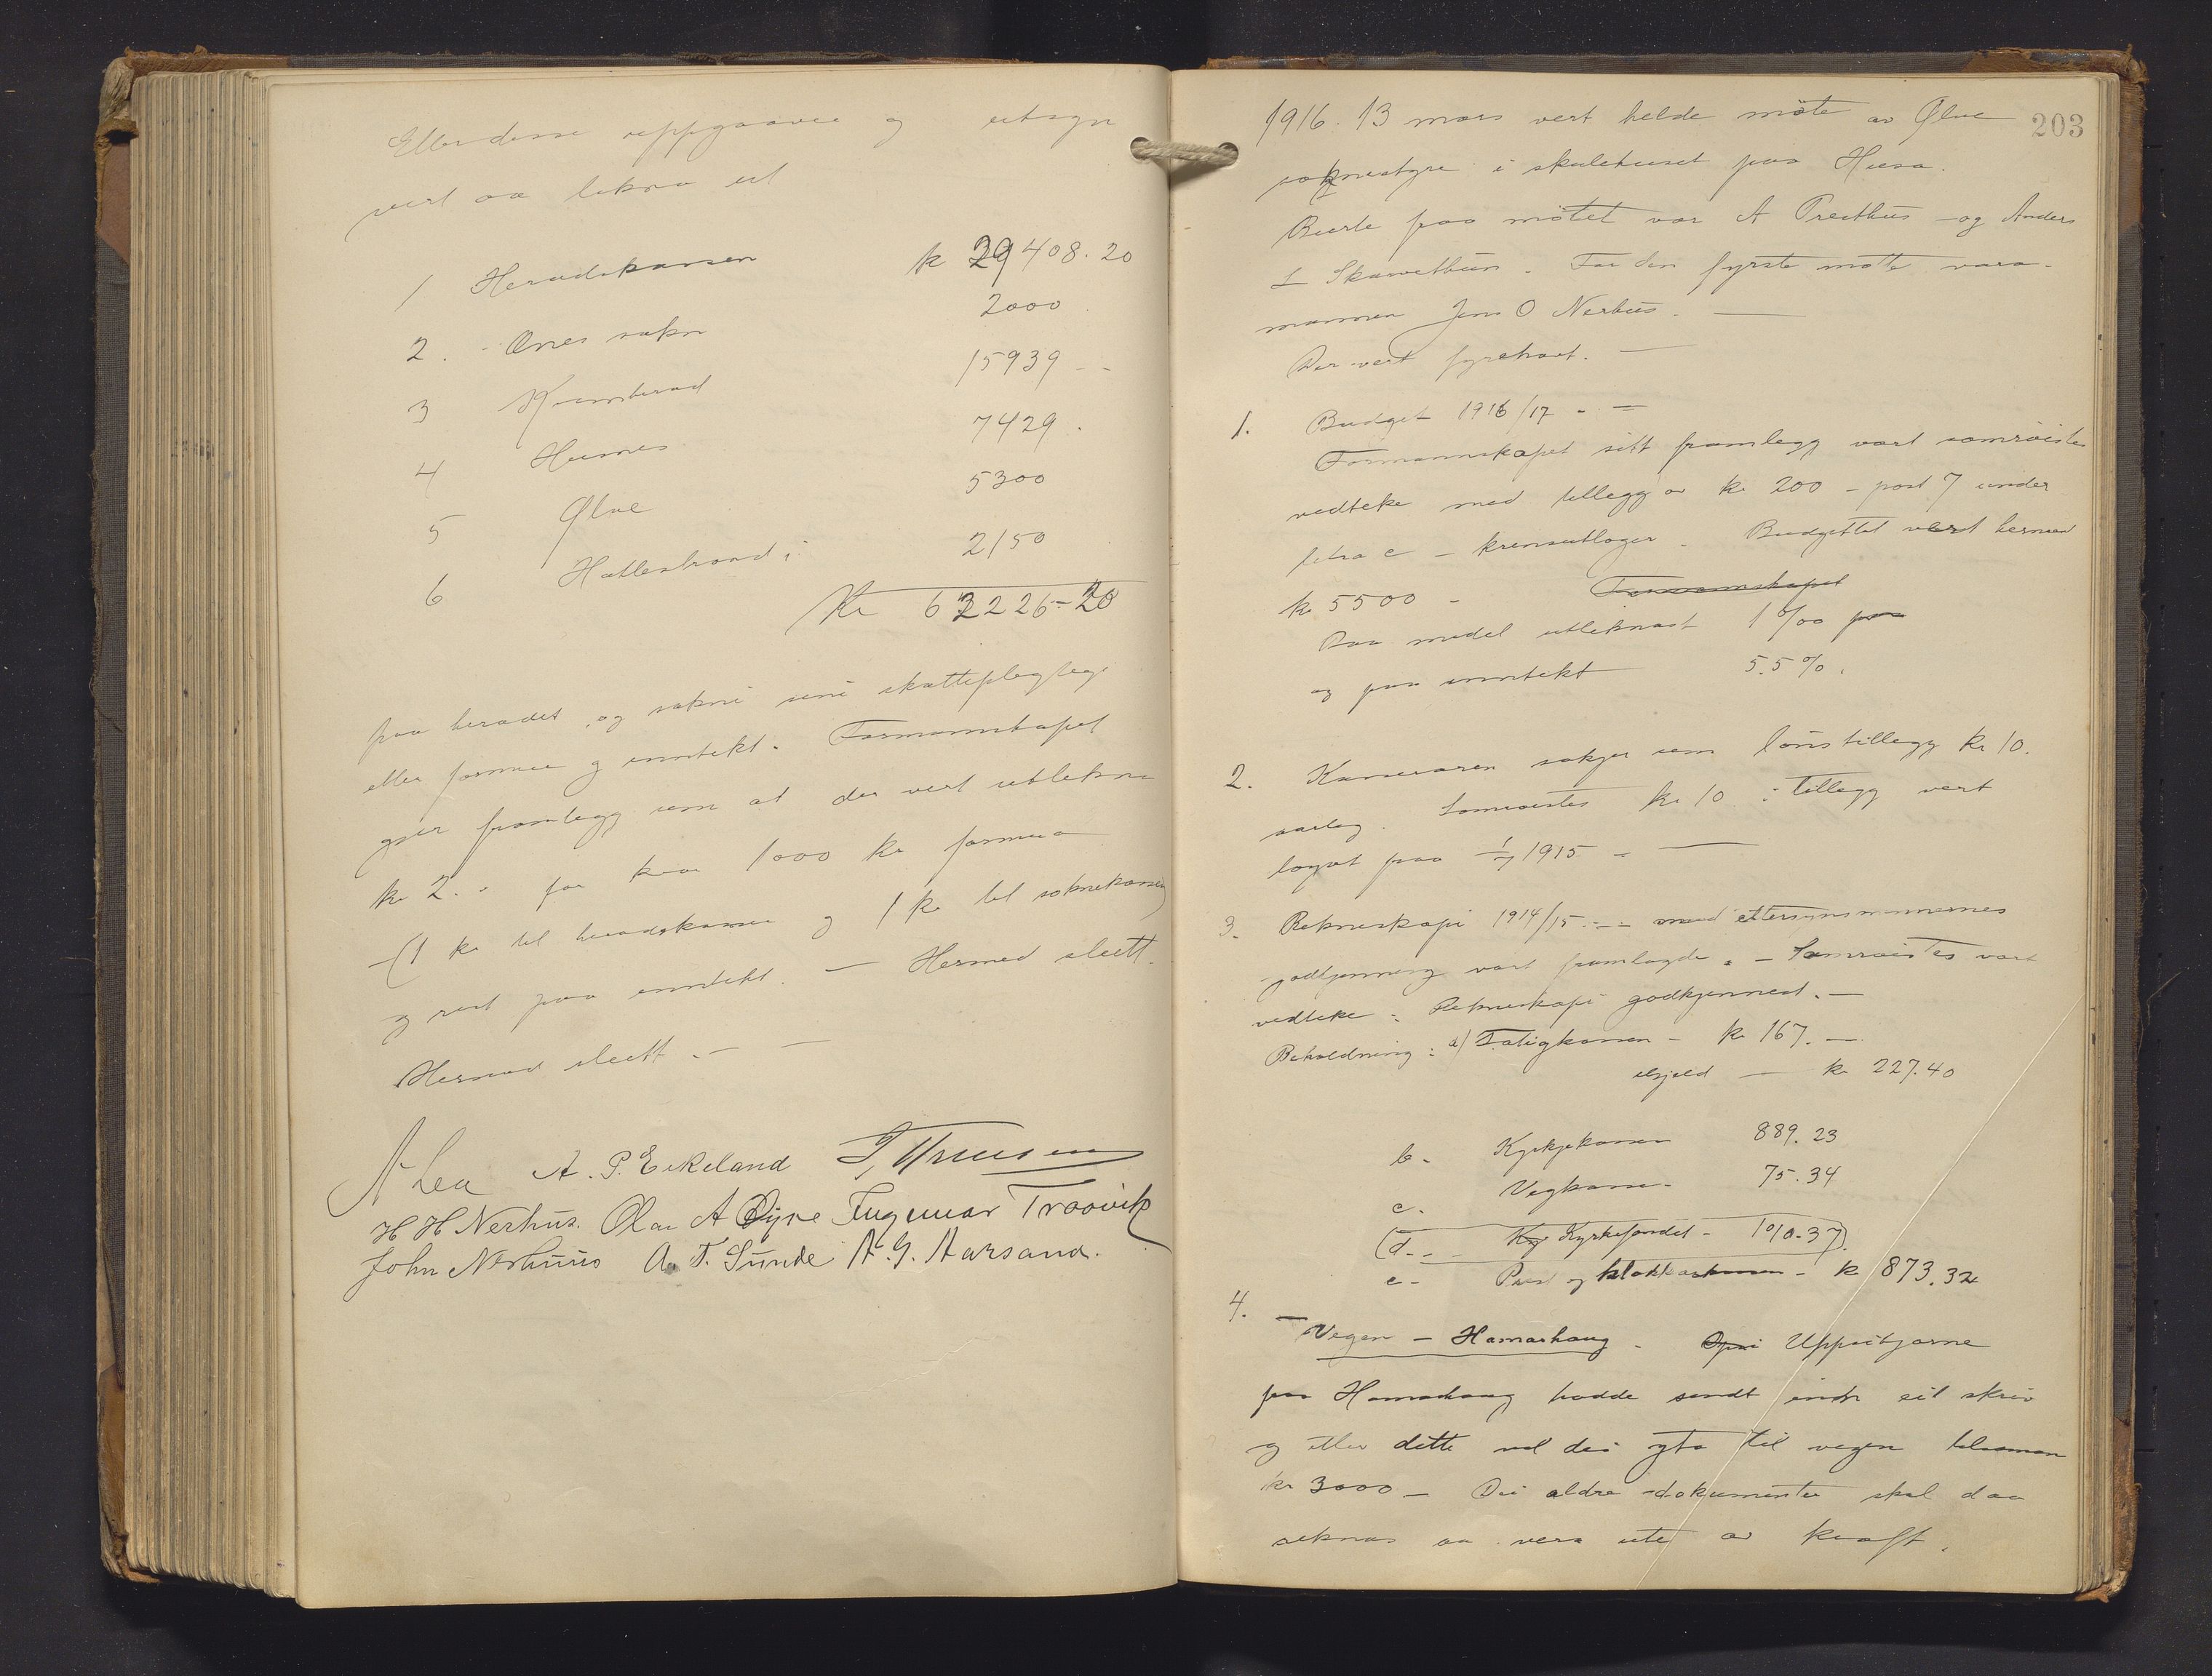 Etter desse uppgaavor og utsyn
vert aa likna ut
1 Heradskassen k 29408.20
2. Ænes sokn 2000
3 Kvinherad 15939 --
4 Husnes 7429.
5 Ølve 5300
6 Hatlestrand 2150
Kr 62226-20
paa heradet og sokni sine skatteplegtege
etter formue og inntekt. Formannskapet
gjer framlegg um at der vert utlikna
kr 2.- for kvar 1000 kr formua
(1 kr til heradskassa og 1 kr til soknekassen)
og rest paa inntekt. — Hermed slutt.
Hermed slutt. — —
A Lea A. P. Eikeland
H H Nerhus. Ola A Øyre Ingemar Traavik
John Nerhuus A. T. Sunde A. G. Aarsand.
203
1916. 13 mars vert helde møte av Ølve
soknestyre i skulehuset paa Husa.
Burte paa møtet var A Presthus og Anders
L Skaathun. For den fyrste møtte vara-
mannen Jens O Nerhus. —
Der vart fyrehavt. —
1. Budget 1916/17 - —
Formannskapet sitt framlegg vart samrøistes
vedteke med tillegg av kr 200 - post 7 under
litra c - Budgettet vert hermed
kr 5500 - Formannskapet
Paa midel utliknast 1 0/00 paa
og paa inntekt 5.5 %.
2. Kasseraren søkjer um lønstillegg kr 10.
aarleg. Samrøistes kr 10 i tillegg vert
løyvt paa 1/7 1915 - —
3. Rekneskapi 1914/15 --- med ettersynsmennernes
godkjenning vart framlagde. - Samrøistes vart
vedteke: Rekneskapi godkjennest. —
Beholdning: a) Fatigkassen - kr 167. —
utgjeld — kr 227.40
b- Kyrkjekassen 889.23
c. Vegkassa - 75.34
(d. - Ky Kyrkjefondet - 1010.37)
e - Prest og klokkarkassen - kr 873.32
4. — Vegen - Hamarhaug. Opsi Uppsitjarne
paa Hamarhaug hadde sendt innh eit skriv
og etter dette vil dei yta til vegen tilsaman
kr 3000 - Dei eldre dokumenter skal daa
reknas aa vera ute av kraft.